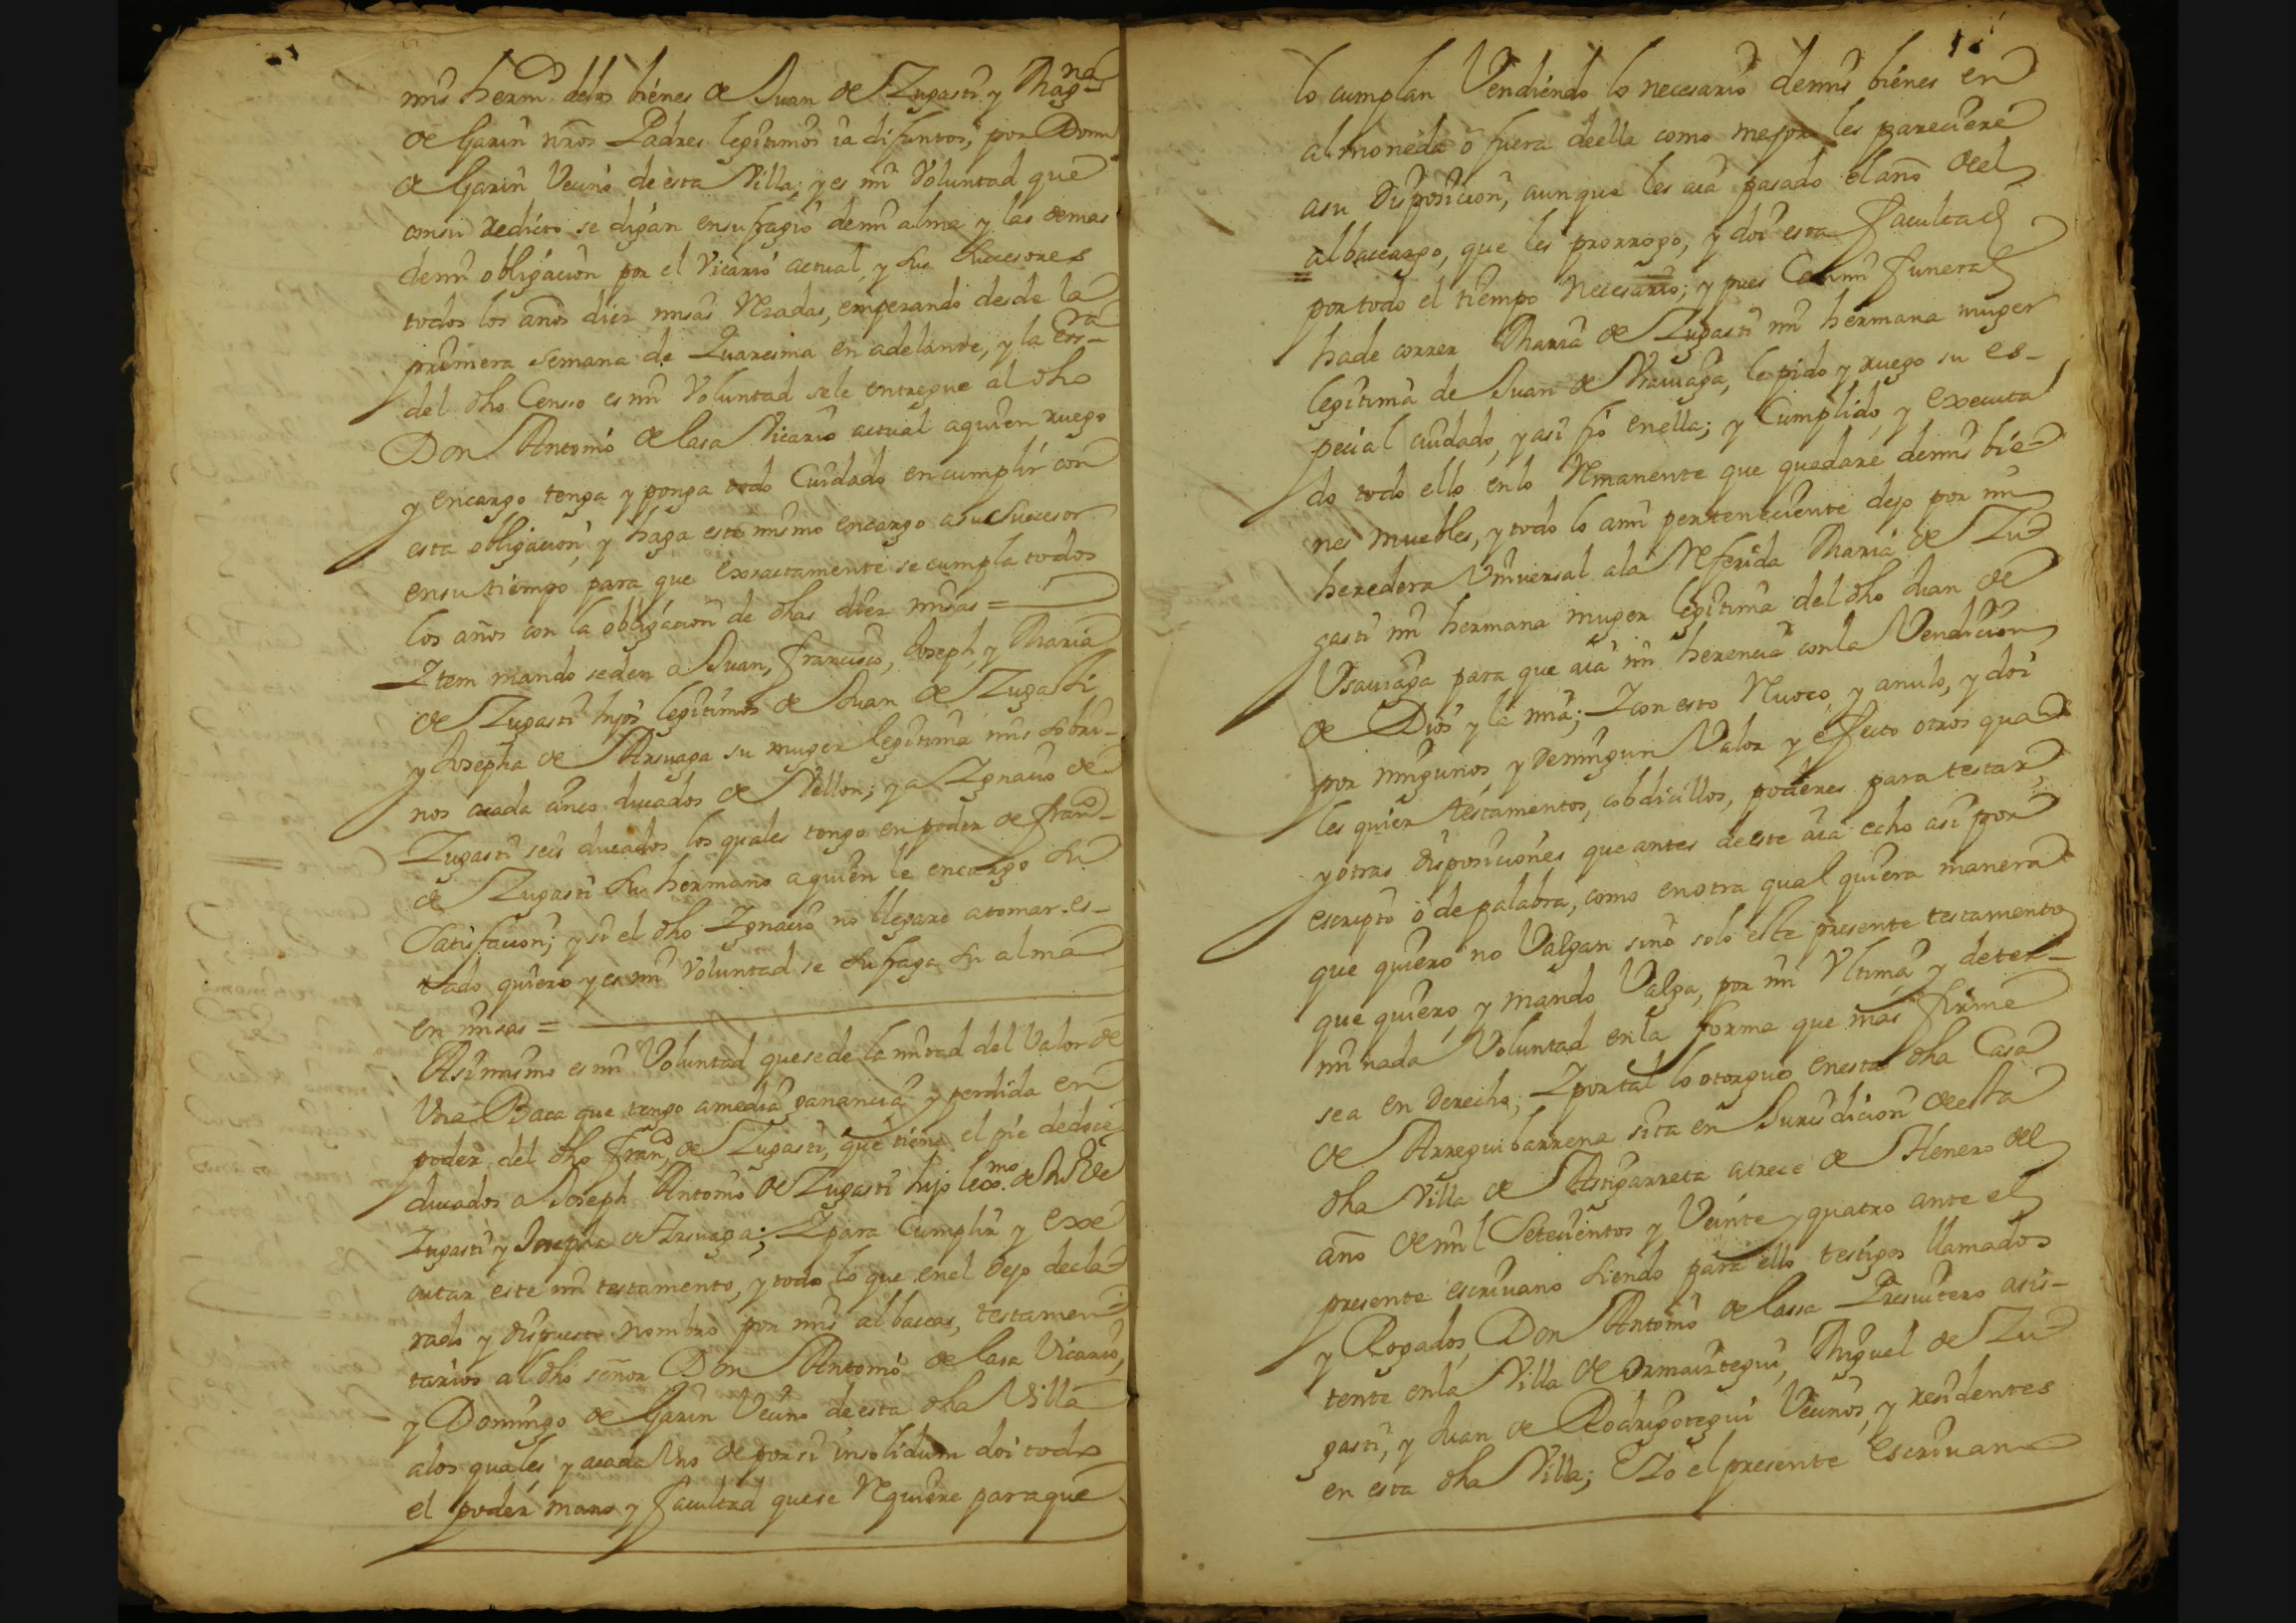 mis herm.s delos bienes de Juan de Zugasti y Mag.na
de Garin nros Padres legitimos ia difuntos, por Dom.o
de Garin Vecino de esta Villa; y es mi Voluntad que
consu redicto se digan ensufragio demi alma y las demas
demi obligacion por el Vicario actual, y sus subcesores
todos los años diez misas Rezadas, empezando desde la
primera semana de Quaresma en adelante, y la esc.ra
del dho Censso es mi Voluntad sele entregue al dho
Don Antonio de lasa Vicario actual aquien ruego
y encargo tenga y ponga todo Cuidado encumplir con
esta obligacion, y haga este mismo encargo asu Sucesor
ensu tiempo, para que exsactamente se cumpla todos
los años con la obligacion de dhas diez misas =
Item mando seden a Juan, francisco, Joseph, y Maria
de Zugasti hijos legitimos de Juan de Zugasti
y Josepha de Arsuaga su muger legitima mis sobri-
nos acada cinco ducados de Vellon; y a Ignacio de
Zugasti seis ducados los quales tengo en poder de fran.co
de Zugasti su hermano aquien le encargo su
Satisfacion; y si el dho Ignacio no llegare atomar es-
tado quiero y es mi Voluntad se sufraga su alma
en misas =
Asimismo es mi Voluntad quesede la mitad del Valor de
Una Baca que tengo amedia ganancia y perdida en
poder del dho fran.co de Zugasti, que tiene el pie dedoce
ducados a Joseph Antonio de Zugasti hijo lex.mo de Ju.o de
Zugasti y Josepha de Arsuaga; I para Cumplir y exe
cutar este mi testamento, y todo lo que enel Dejo decla-
rado y dispuesto nombro por mis albaceas, testamen-
tarios al dho señor Don Antonio de lasa Vicario,
y Domingo de Garin Vecino deesta dha Villa
alos quales y acada Uno de porsi insolidum doi todo
el poder mano y facultad quese Requiere paraque
lo cumplan Vendiendo lo necesario demis bienes en
almoneda o fuera deella como mejor les pareciere
asu Disposicion, aunque les aia pasado el año del
albaceazgo, que les prorrogo, y doi esta facultad
portodo el tiempo necesario; y pues Conmi funeral
hade correr Maria de Zugasti mi hermana muger
legitima de Juan de Usauiaga, le pido y ruego su es-
pecial cuidado, y asi fio enella; y Cumplido, y executa
do todo ello enlo Remanente que quedare demis bie-
nes muebles, y todo lo ami perteneciente dejo por mi
heredera Universal ala Referida Maria de Zu-
gasti mi hermana muger legitima del dho Juan de
Usauiaga para que aia mi herencia conla Vendicion
de Dios y la mia; I con esto Revoco, y anulo, y doi
por ningunos, y Deningun Valor y efecto otros qua-
les quier testamentos, cobdicillos, poderes para testar,
y otras disposiciones que antes deeste aia echo asi por
escripto o de palabra, como enotra qual quiera manera
que quiero no Valgan sino solo este presente testamento
que quiero, y mando Valga, por mi Ultima, y deter-
minada Voluntad enla forma que mas firme
sea en Derecho; I portal lo otorgue enesta dha Casa
de Arreguibarrena sita en Jurisdicion deesta
dha Villa de Astigarreta atrece de Henero del
año demil Setecientos y Veinte y quatro ante el
presente escriuano siendo para ello testigos llamados
y Rogados Don Antonio de lassa Presvitero asis-
tente enla Villa de Ormaiztegui, Miguel de Zu-
gasti, y Juan de Rodrigotegui Vecinos, y residentes
en esta dha Villa; E Yo el presente Escriuano